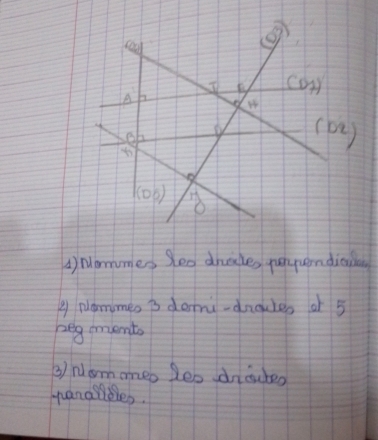 (D3)
I
E
(D1)
A
H
B
(D2)
(D5)
1) Nommes les droites perpendiculaires
2) Nommes 3 demi-droites et 5
segments
3) Nommes les droites
parallèles.